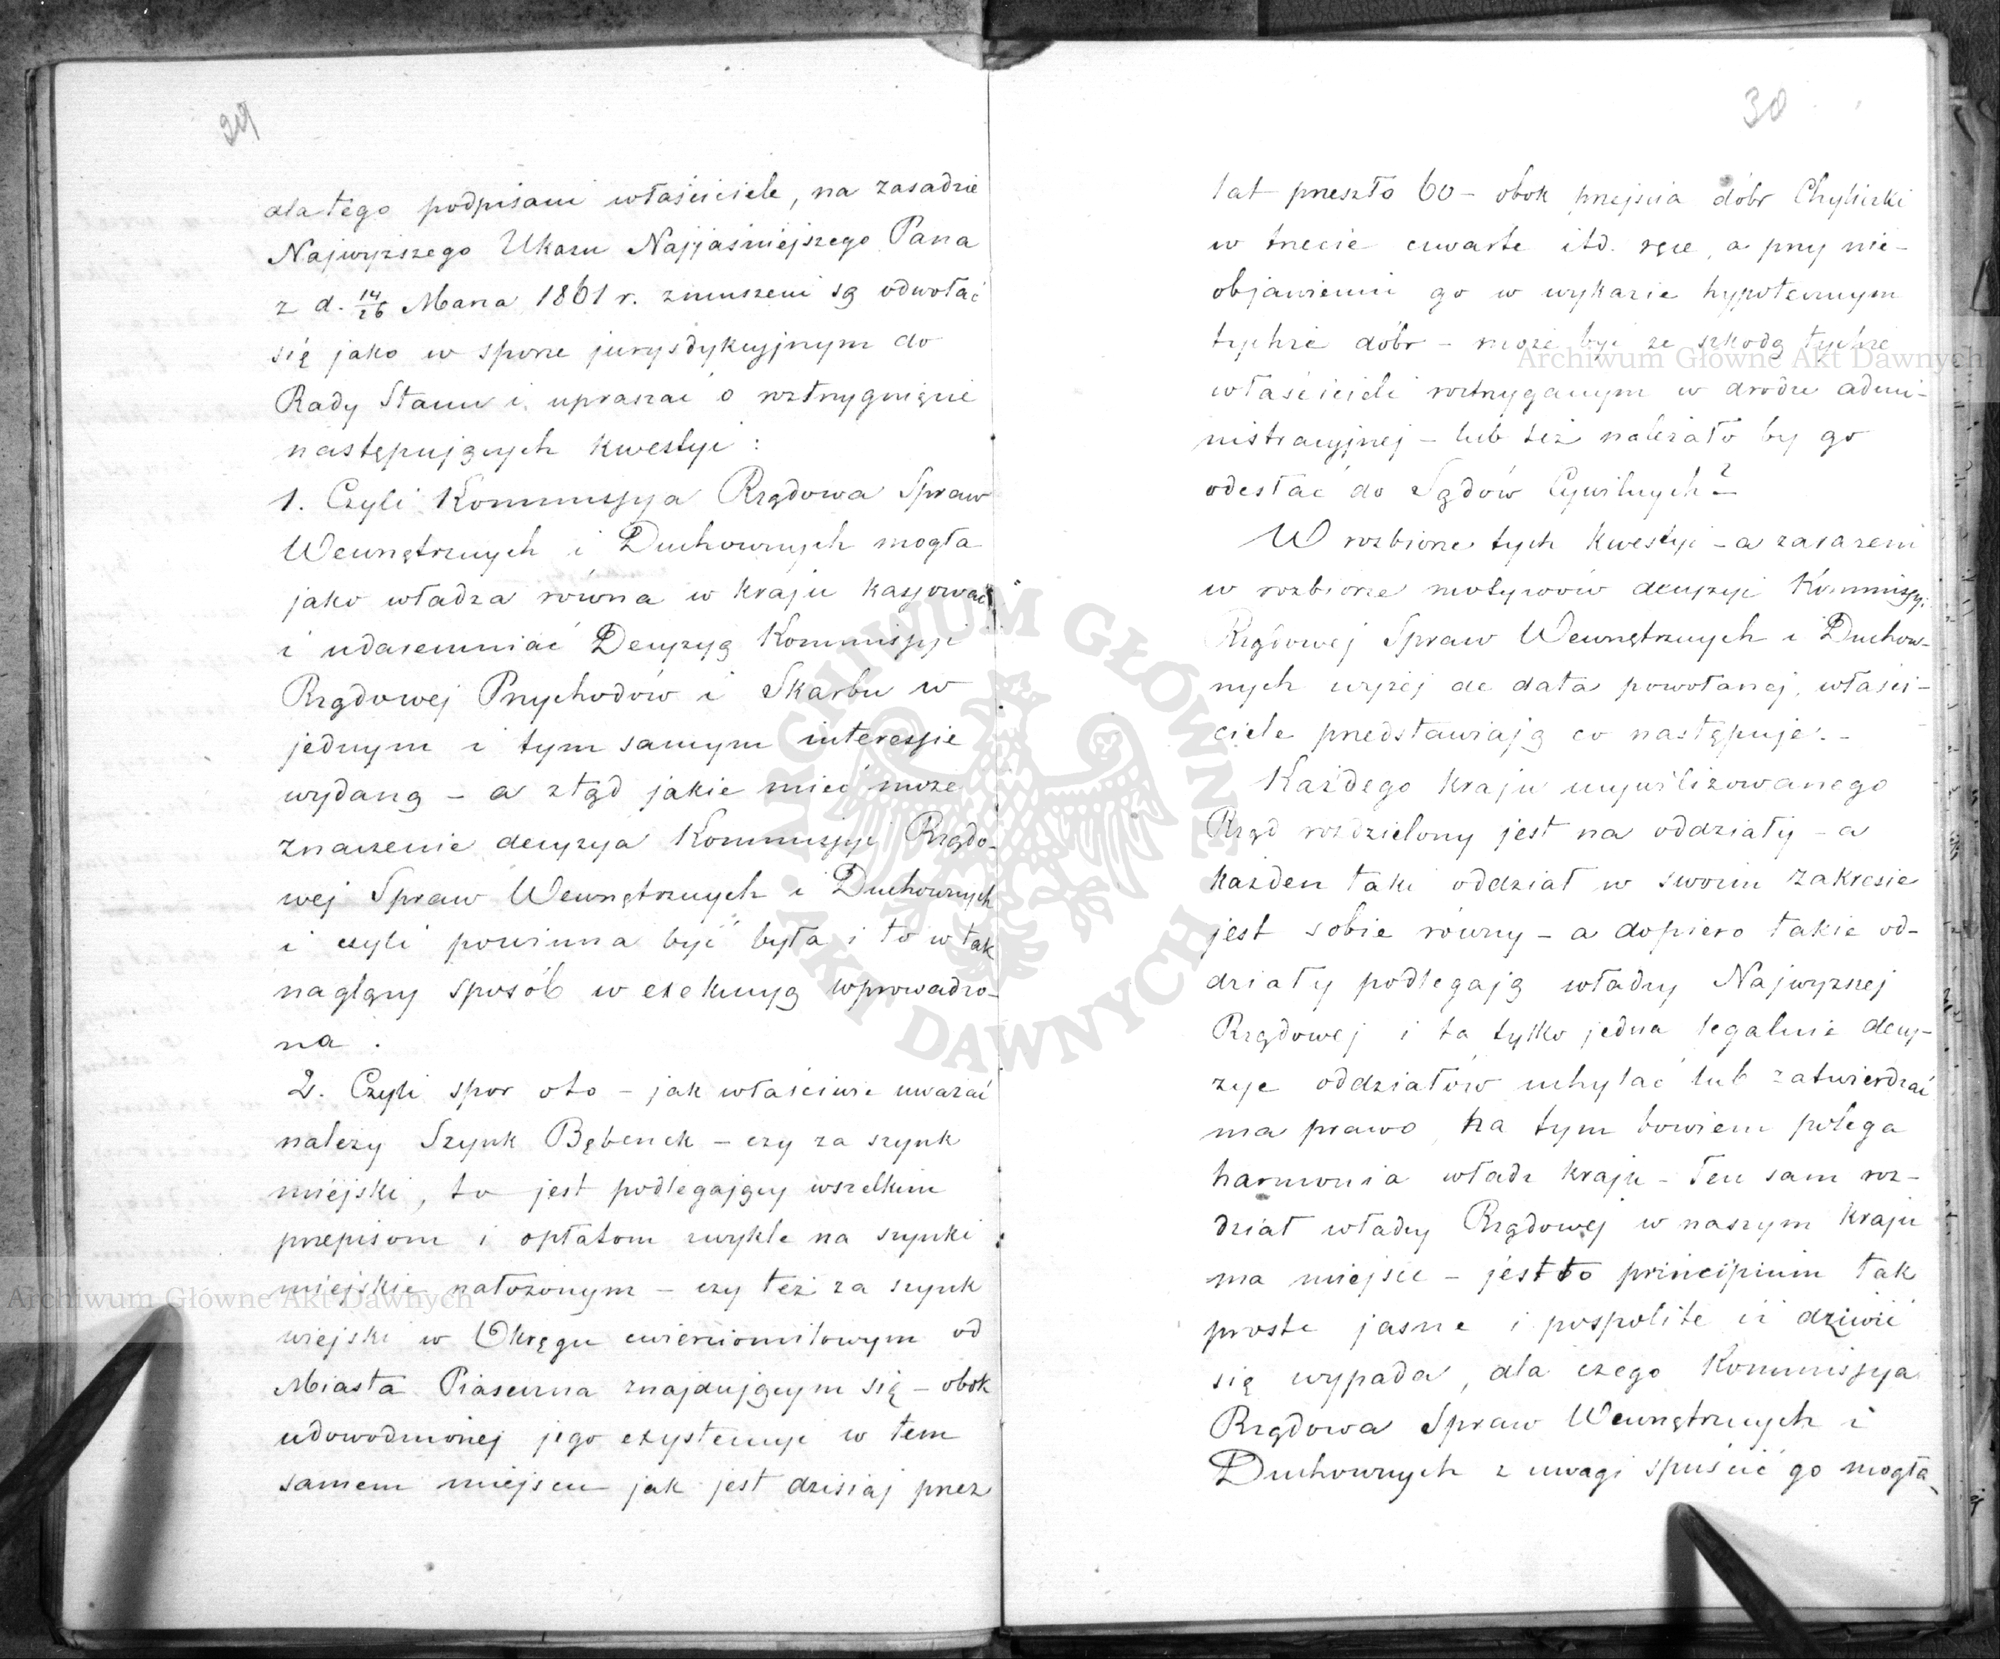 29
dla tego podpisani właściciele, na zasadzie
Najwyższego Ukazu Najjaśniejszego Pana
z d. 14/26 Marca 1861 r. zmuszeni są odwołać
się jako w sporze jurysdykcyjnym do
Rady Stanu i upraszać o roztrzygnięcie
następujących kwestyi:
1. Czyli Kommissya Rządowa Spraw
Wewnętrznych i Duchownych mogła
jako władza równa w kraju kassować
i udaremniać Decyzyą Kommissyi
Rządowej Przychodów i Skarbu w
jednym i tym samym interessie
wydaną – a ztąd jakie mieć może
znaczenie decyzya Kommissyi Rządo-
wej Spraw Wewnętrznych i Duchownych
i czyli powinna być była i to w tak
naglący sposób w exekucyą wprowadzo-
na.
2. Czyli spor oto – jak właściwie uważać
należy Szynk Bębenek – czy za szynk
miejski, to jest podlegający wszelkim
przepisom i opłatom zwykle na szynki
miejskie nałożonym – czy też za szynk
wiejski w Okręgu ćwierciomilowym od
Miasta Piaseczna znajdującym się – obok
udowodnionej jego exystencyi w tem
samem miejscu jak jest dzisiaj przez
30
lat przeszło 60 – obok przejścia dóbr Chyliczki
w trzecie czwarte itd. ręce, a przy nie-
objawieniu go w wykazie hypotecznym
tychże dóbr – może być ze szkodą tychże
właścicieli roztrzyganym w drodze admi-
nistracyjnej – lub też należało by go
odesłać do Sądów Cywilnych?
W rozbiorze tych kwestyi – a zarazem
w rozbiorze motywów decyzyi Kommissyi
Rządowej Spraw Wewnętrznych i Duchow-
nych wyżej de data powołanej, właści-
ciele przedstawiają co następuje. –
Każdego kraju ucywilizowanego
Rząd rozdzielony jest na oddziały – a
każden taki oddział w swoim zakresie
jest sobie równy – a dopiero takie od-
działy podlegają władzy Najwyższej
Rządowej i ta tylko jedna legalnie decy-
zye oddziałów uchylać lub zatwierdzać
ma prawo, na tym bowiem polega
harmonia władz kraju – Ten sam roz-
dział władzy Rządowej w naszym kraju
ma miejsce – jest to principium tak
proste jasne i pospolite iż dziwić
się wypada, dla czego Kommissya
Rządowa Spraw Wewnętrznych i
Duchownych z uwagi spuścić go mogła,
Archiwum Główne Akt Dawnych
Archiwum Główne Akt Dawnych
ARCHIWUM GŁÓWNE AKT DAWNYCH